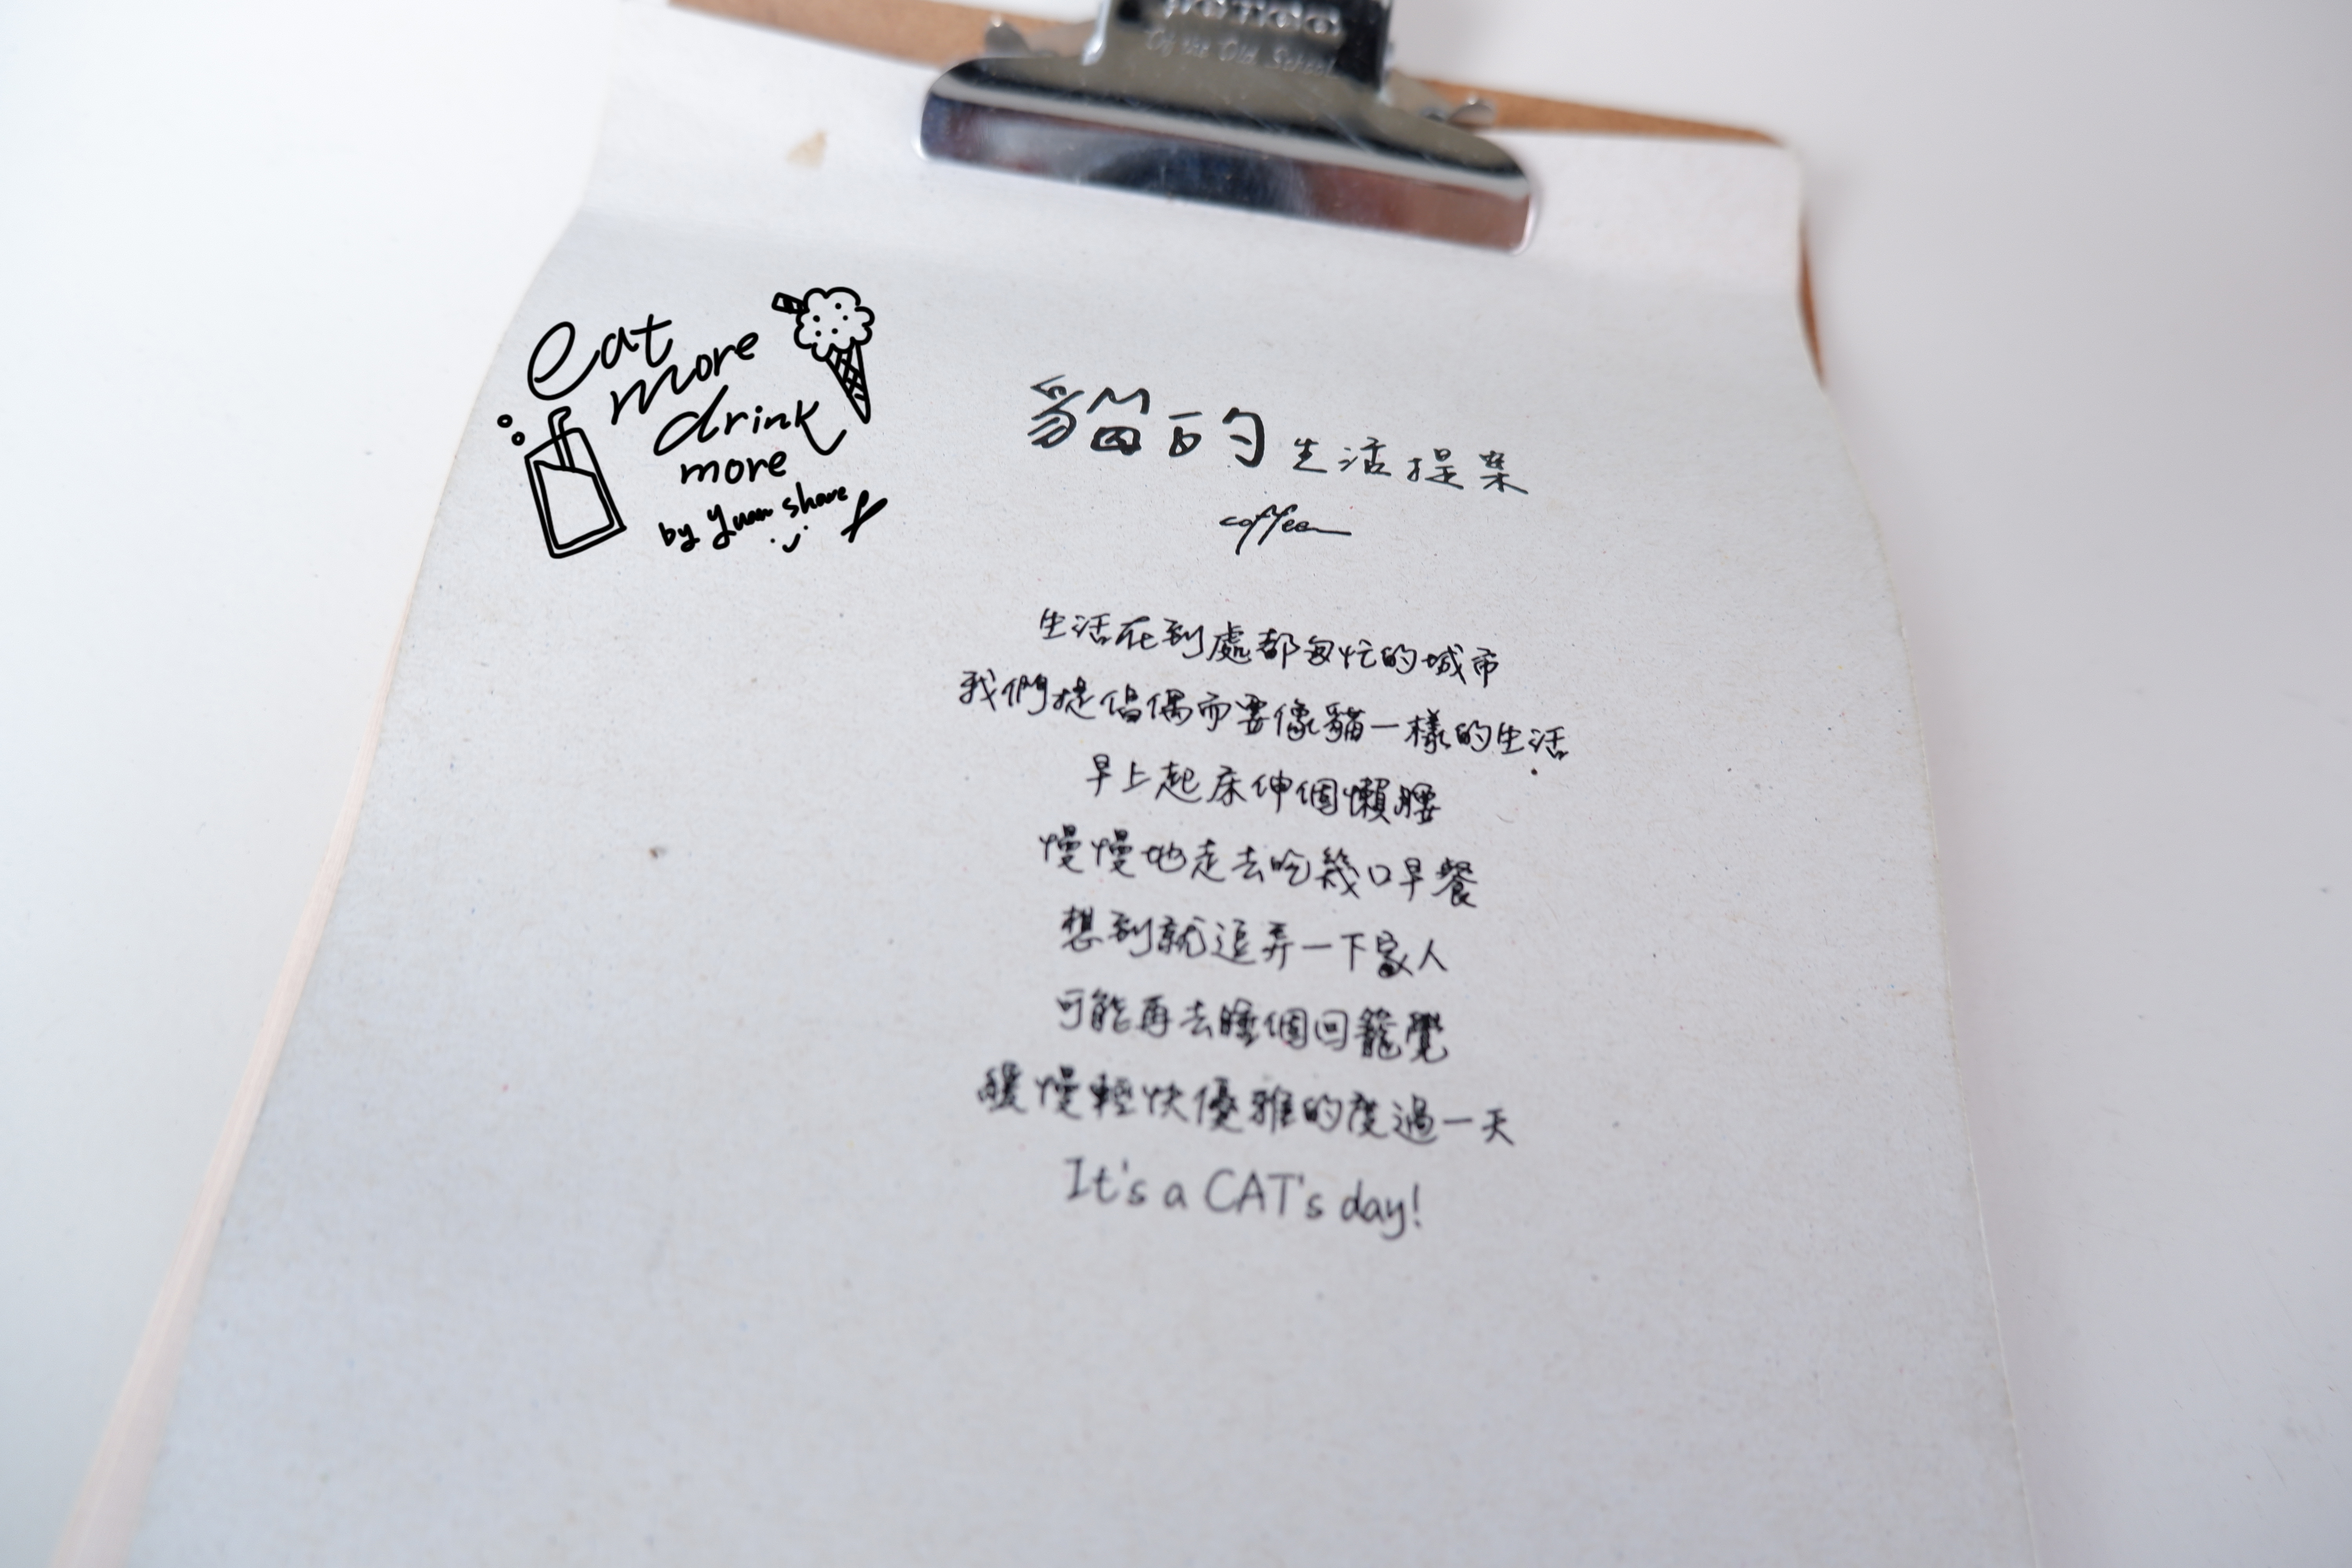 Of the Old School
eat
more
drink
more
by yuan share
貓的生活提案
coffee
生活在到處都匆忙的城市
我們提倡偶而要像貓一樣的生活
早上起床伸個懶腰
慢慢地走去吃幾口早餐
想到就逗弄一下家人
可能再去睡個回籠覺
緩慢輕快優雅的度過一天
It's a CAT's day!